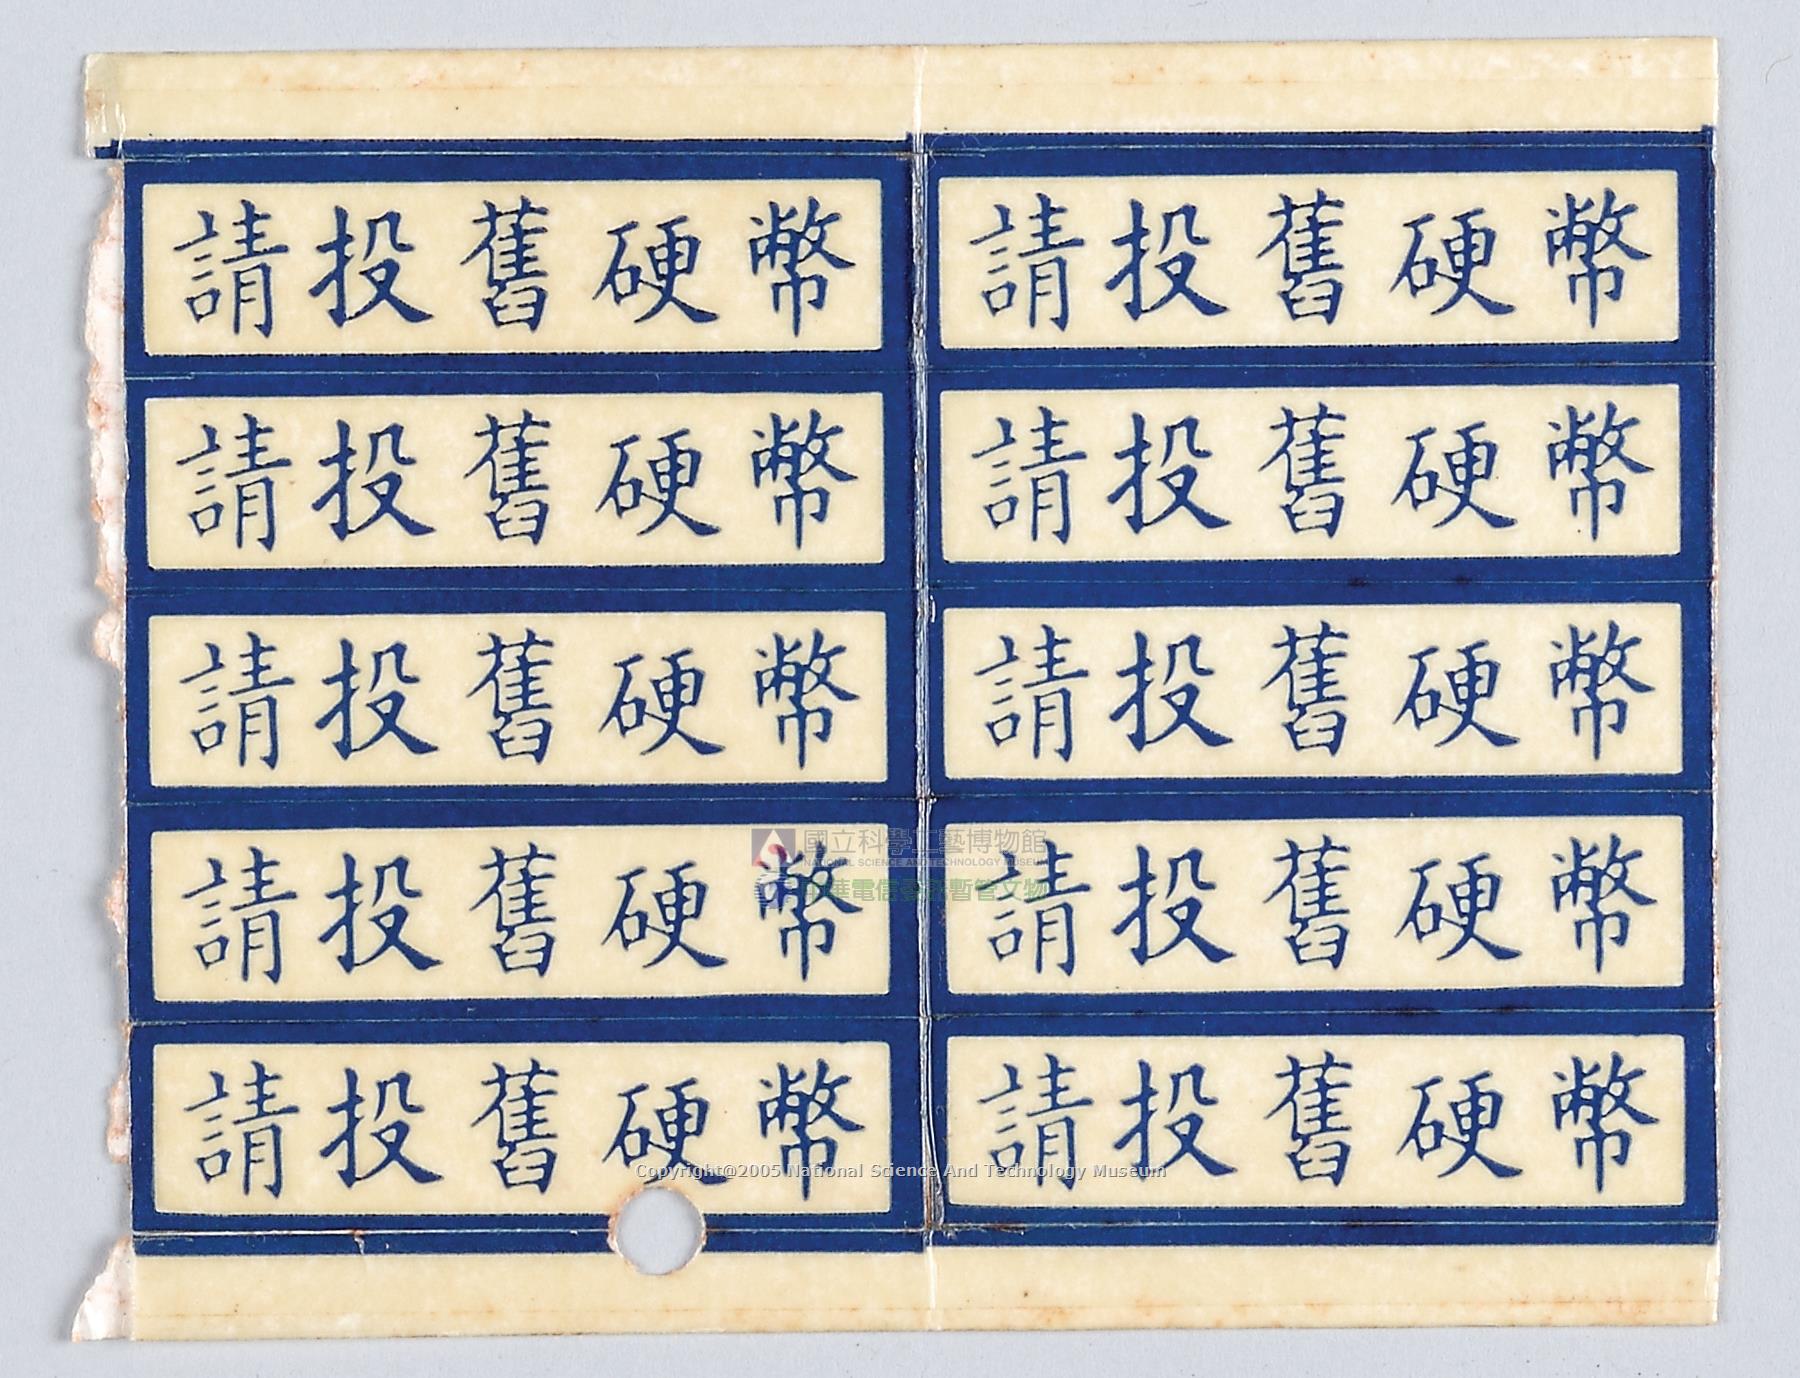 請投舊硬幣 請投舊硬幣
請投舊硬幣 請投舊硬幣
請投舊硬幣 請投舊硬幣
國立科學工藝博物館
NATIONAL SCIENCE AND TECHNOLOGY MUSEUM
請投舊硬幣 請投舊硬幣
中華電信委託暫管文物
請投舊硬幣 請投舊硬幣
Copyright@2005 National Science And Technology Museum